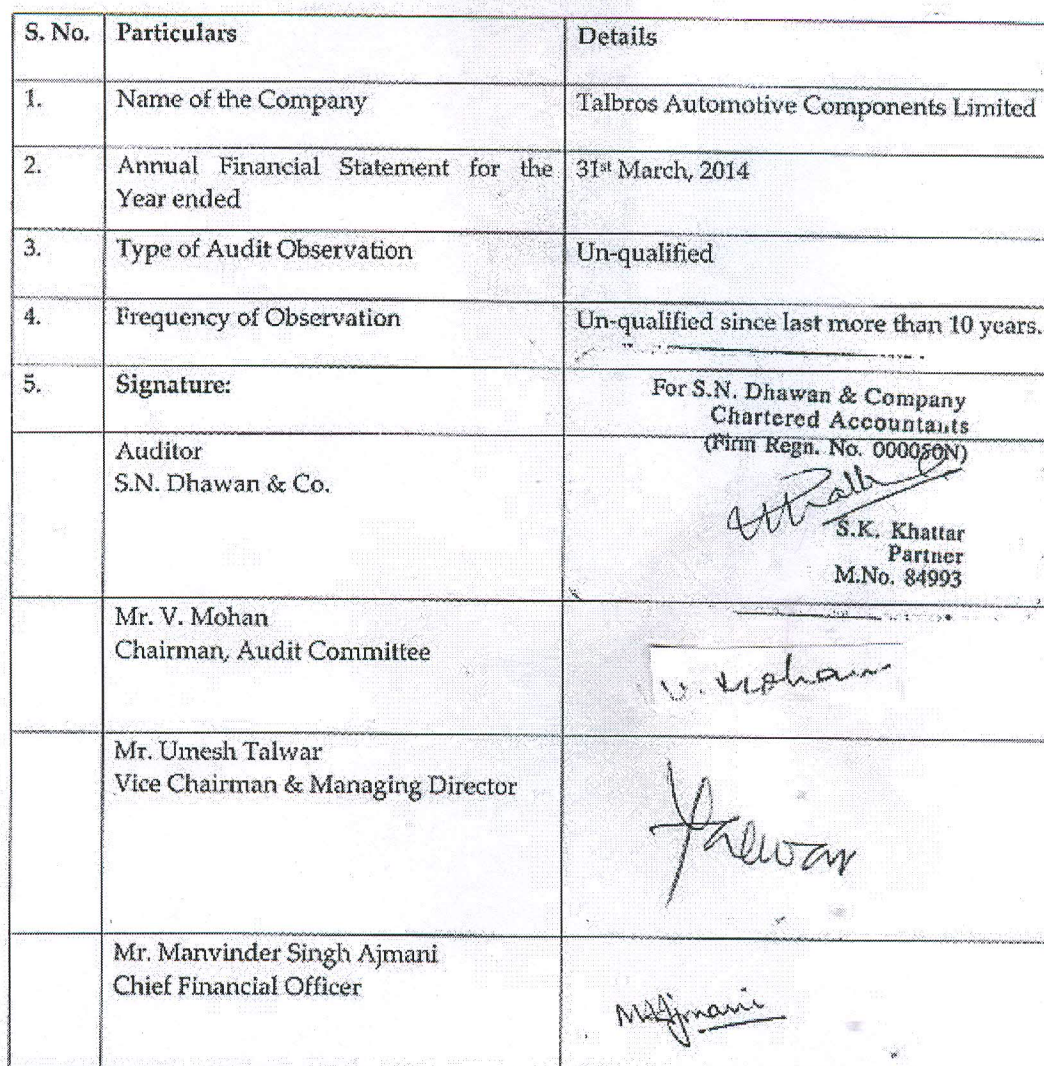 S. No. Particulars Details
1. Name of the Company Talbros Automotive Components Limited
2. Annual Financial Statement for the 31st March, 2014
Year ended
3. Type of Audit Observation Un-qualified
4. Frequency of Observation Un-qualified since last more than 10 years.
5. Signature: For S.N. Dhawan & Company
Chartered Accountants
(Firm Regn. No. 000050N)
Auditor
S.N. Dhawan & Co.
S.K. Khattar
Partner
M.No. 84993
Mr. V. Mohan
Chairman, Audit Committee
V. Mohan
Mr. Umesh Talwar
Vice Chairman & Managing Director
Talwar
Mr. Manvinder Singh Ajmani
Chief Financial Officer
MSAjmani